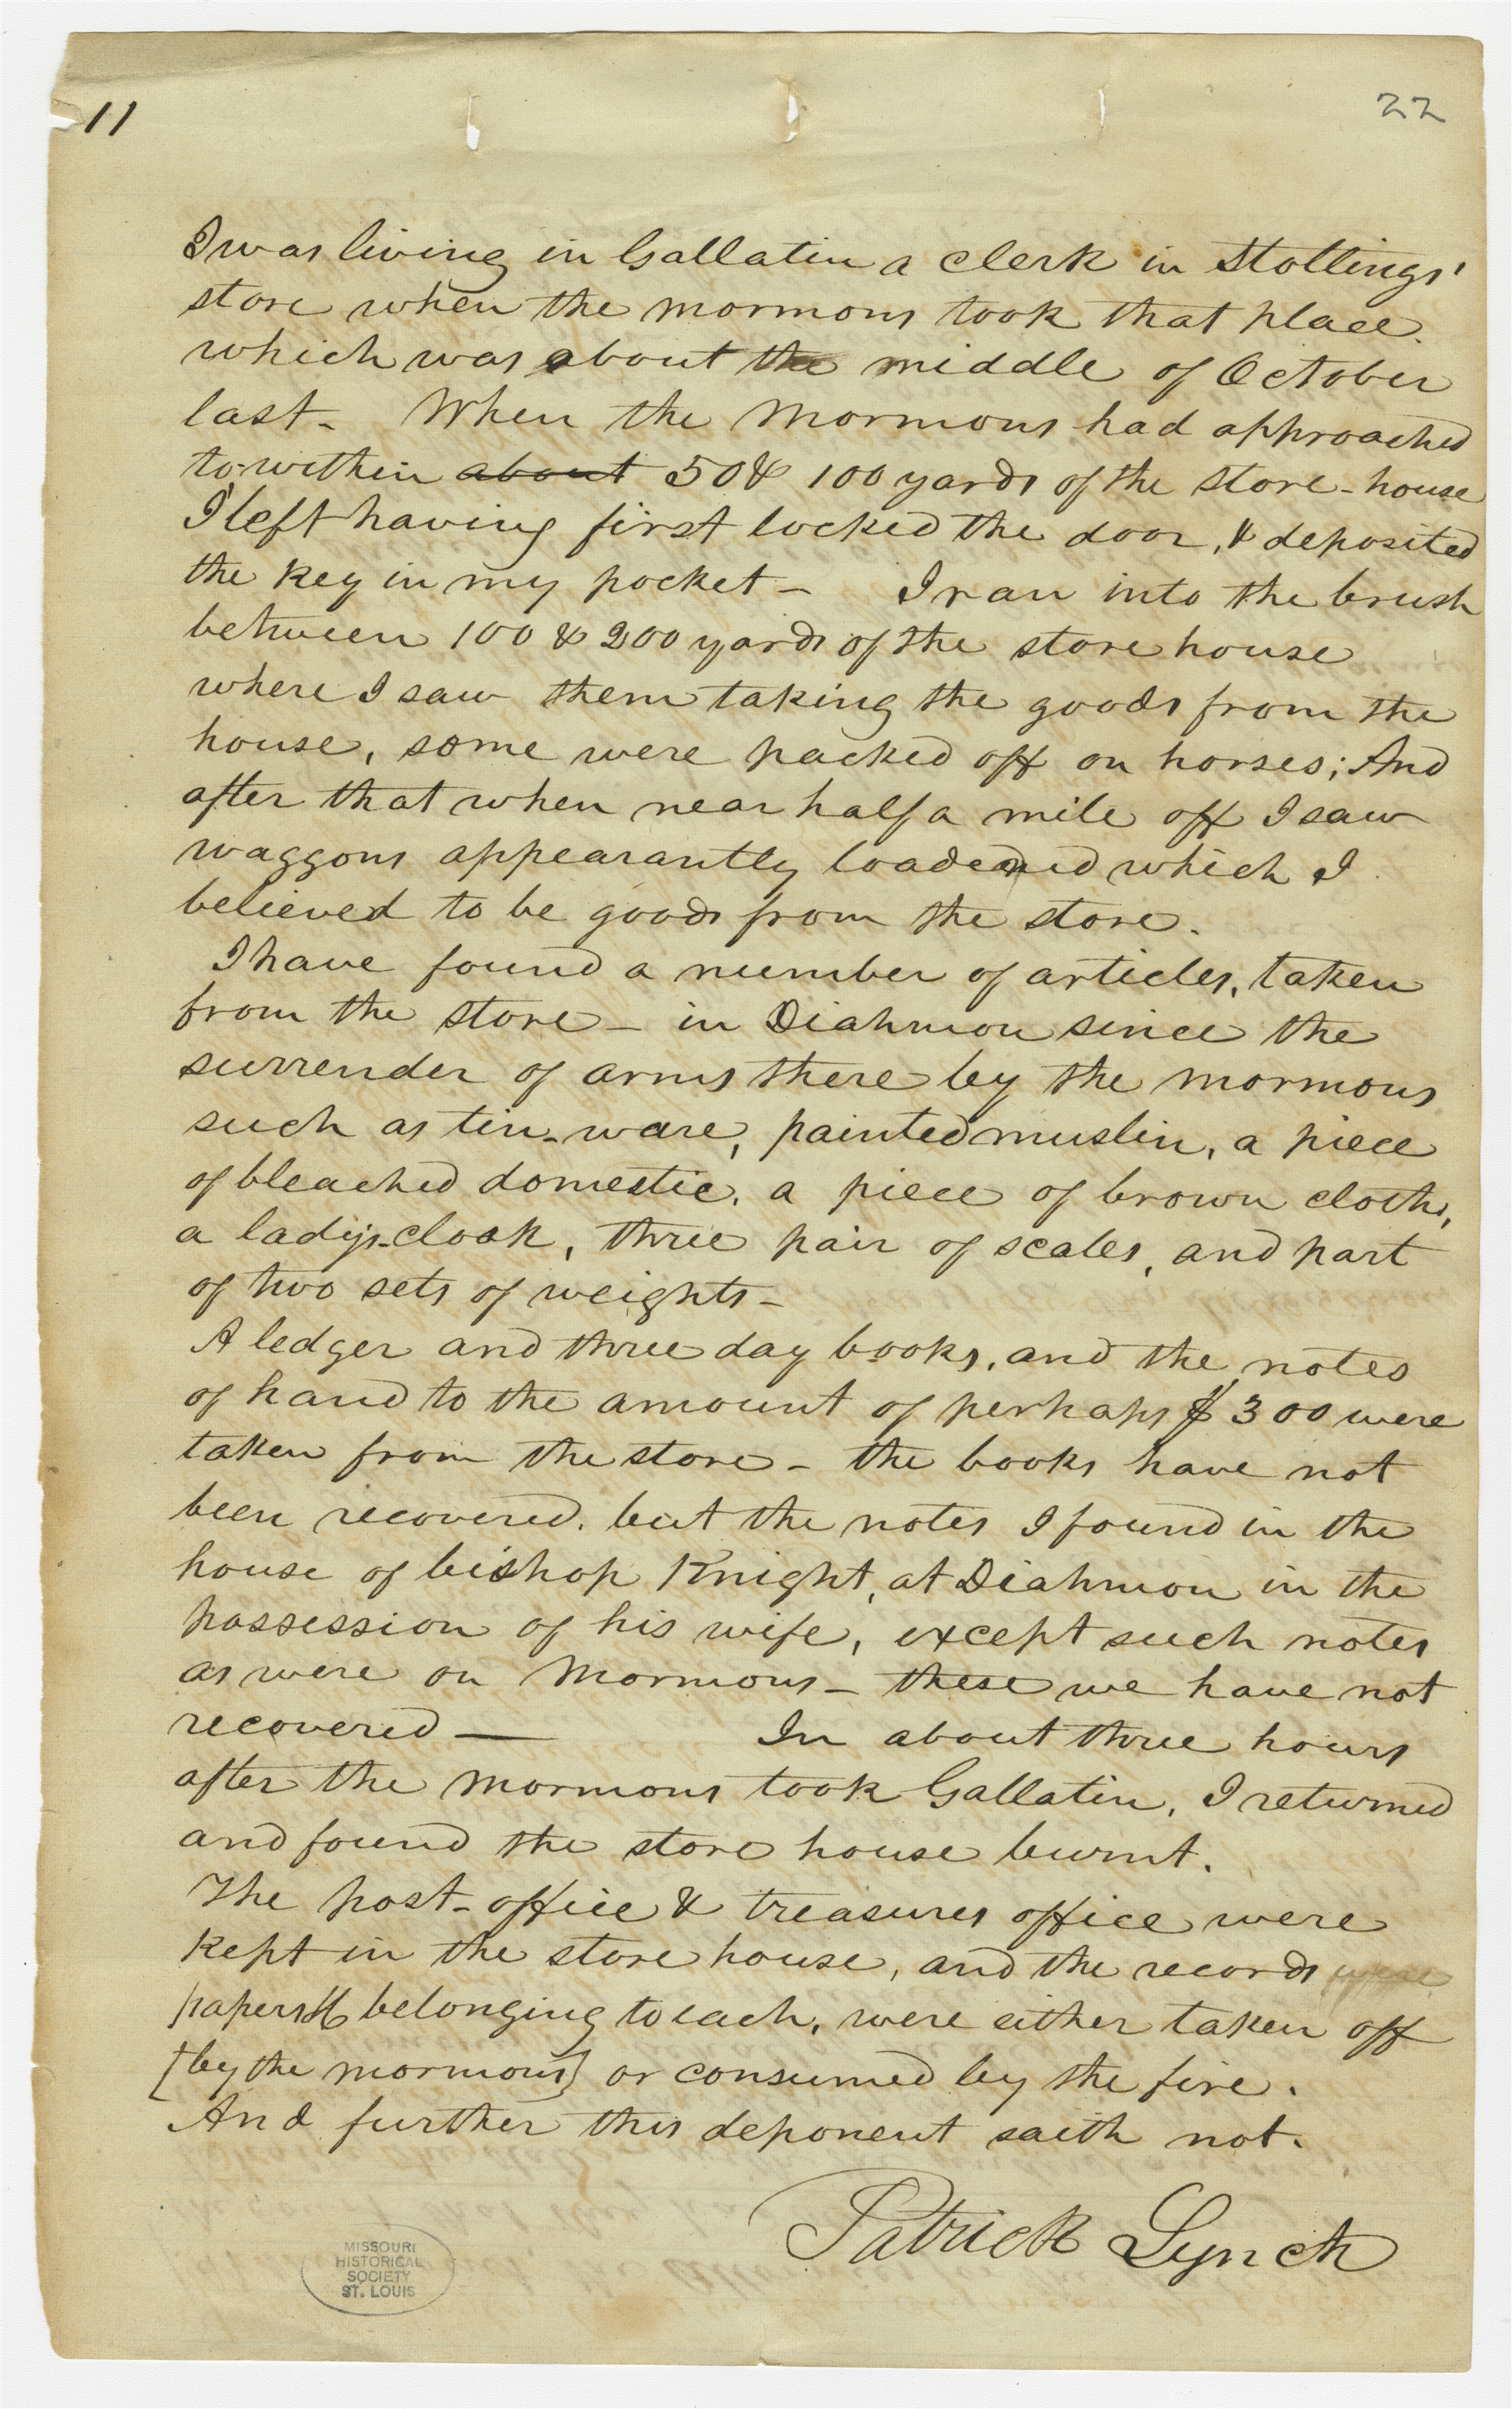 11
22
I was living in Gallatin a clerk in Stollings'
store when the mormons took that place.
which was about the middle of October
last - When the Mormons had approached
to within about 50 & 100 yards of the store-house
I left having first locked the door, & deposited
the key in my pocket - I ran into the brush
between 100 & 200 yards of the store house
where I saw them taking the goods from the
house, some were packed off on horses; And
after that when near half a mile off I saw
waggons appearantly loadened which I
believed to be goods from the store.
I have found a number of articles, taken
from the store - in Diahmon since the
surrender of arms there by the mormons
such as tin-ware, painted muslin, a piece
of bleached domestic, a piece of brown cloth,
a ladys-cloak, three pair of scales, and part
of two sets of weights -
A ledger and three day books, and the notes
of hand to the amount of perhaps $300 were
taken from the store - the books have not
been recovered. but the notes I found in the
house of bishop Knight, at Diahmon in the
possession of his wife, except such notes
as were on Mormons - these we have not
recovered — In about three hours
after the mormons took Gallatin, I returned
and found the store house burnt.
The post-office & treasures office were
kept in the store house, and the records were
papers &c belonging to each, were either taken off
[by the mormons] or consumed by the fire.
And further this deponent saith not.
Patrick Lynch
MISSOURI
HISTORICAL
SOCIETY
ST. LOUIS